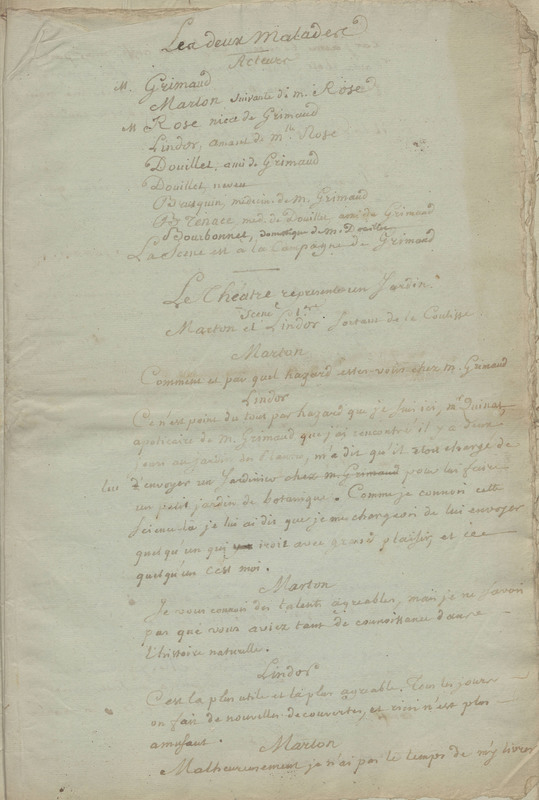 Les deux Malades
Acteurs
M. Grimaud
Marton suivante de m. Rose
M Rose niece de Grimaud
Lindor, amant de mlle Rose
Douillet, ami de Grimaud
Douillet, neveu
Brusquin, médecin de m. Grimaud
méd. de Douillet, ami de Grimaud
Bourbonnet, domestique de m. Douillet
La Scene est à la Campagne de Grimaud
Le Théatre represente un Jardin.
Scene 1ere
Marton et Lindor sortant de la Coulisse
Marton
Comment et par quel hazard estes-vous chez m. Grimaud
Lindor
Ce n'est point du tout par hazard que je suis ici, mr
apoticaire de M. Grimaud que j'ai rencontré il y a deux
jours au jardin des plantes, m'a dit qu'il étoit chargé de
lui d'envoyer un Jardinier chez m. Grimaud pour lui faire
un petit jardin de botanique. Comme je connois cette
science là je lui ai dit que je me chargeois de lui envoyer
quelqu'un qui iroit avec grand plaisir, et ce
quelqu'un c'est moi.
Marton
Je vous connois des talents agreables, mais je ne savois
pas que vous aviez tant de connoissance dans
l'histoire naturelle.
Lindor
C'est la plus utile et la plus agreable. Tous les jours
on fait de nouvelles decouvertes, et rien n'est plus
amusant.
Marton
Malheureusement je n'ai pas le temps de m'y livrer